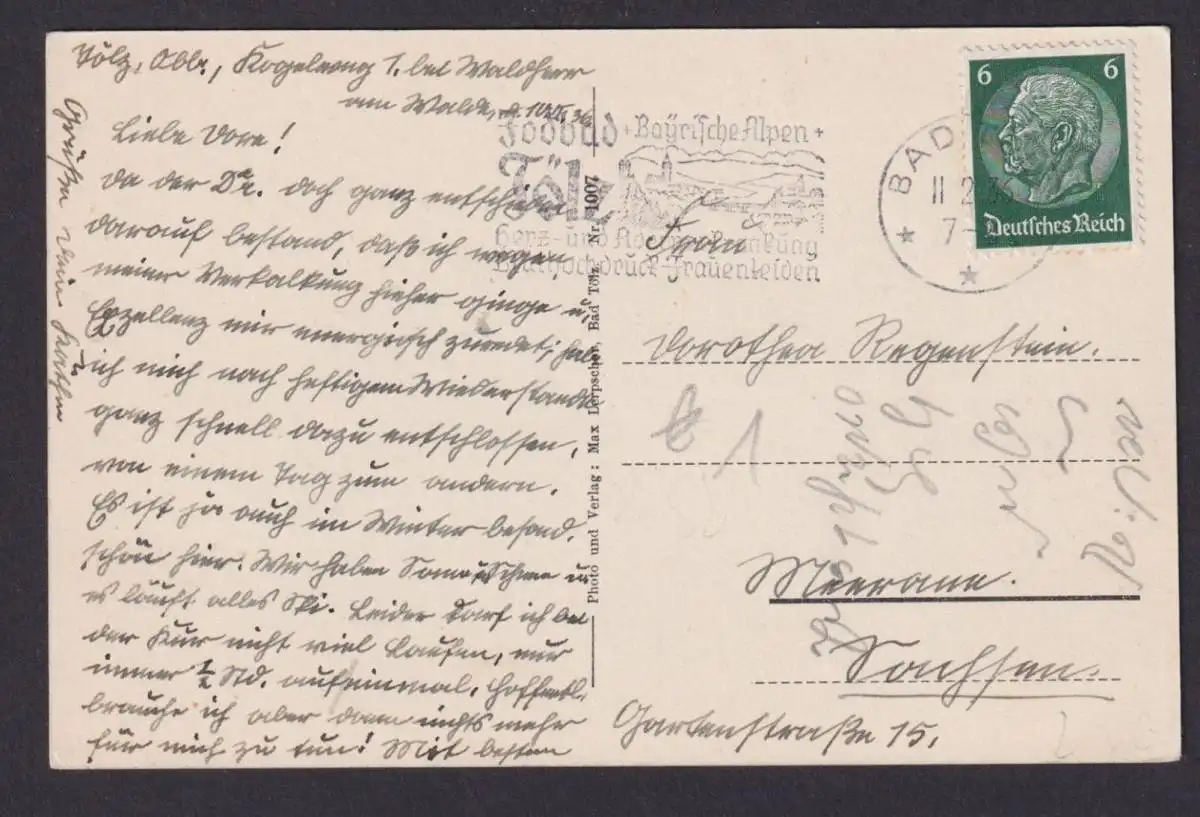 Tölz, Obb., Kogelweg 1. bei Waldherr
am Walde, d. 10.II.36
Liebe Dore!
Da der Dr. doch ganz entschieden
darauf bestand, daß ich wegen
meiner Verkalkung hieher ginge u.
Exzellenz mir energisch zuredet, hab
ich mich nach heftigem Wiederstande
ganz schnell dazu entschlossen,
von einem Tag zum andern.
Es ist ja auch im Winter besond.
schön hier. Wir haben Sonne u Schnee u
es läuft alles Ski. Leider darf ich bei
der Kur nicht viel laufen, nur
immer 1/2 Std. aufeinmal. Hoffentl.
brauche ich aber dann nichts mehr
für mich zu tun! Mit besten
Grüßen Deine
Photo und Verlag: Max Lerpscher, Bad Tölz Nr. 1007
Jodbad + Bayrische Alpen +
Tölz
Herz- und
Bluthochdruck-Frauenleiden
BAD
11.2.36
7-
6 6
Deutsches Reich
Frau
Dorothea Regenstein.
1
Meerane.
Sachsen.
Gartenstraße 15.